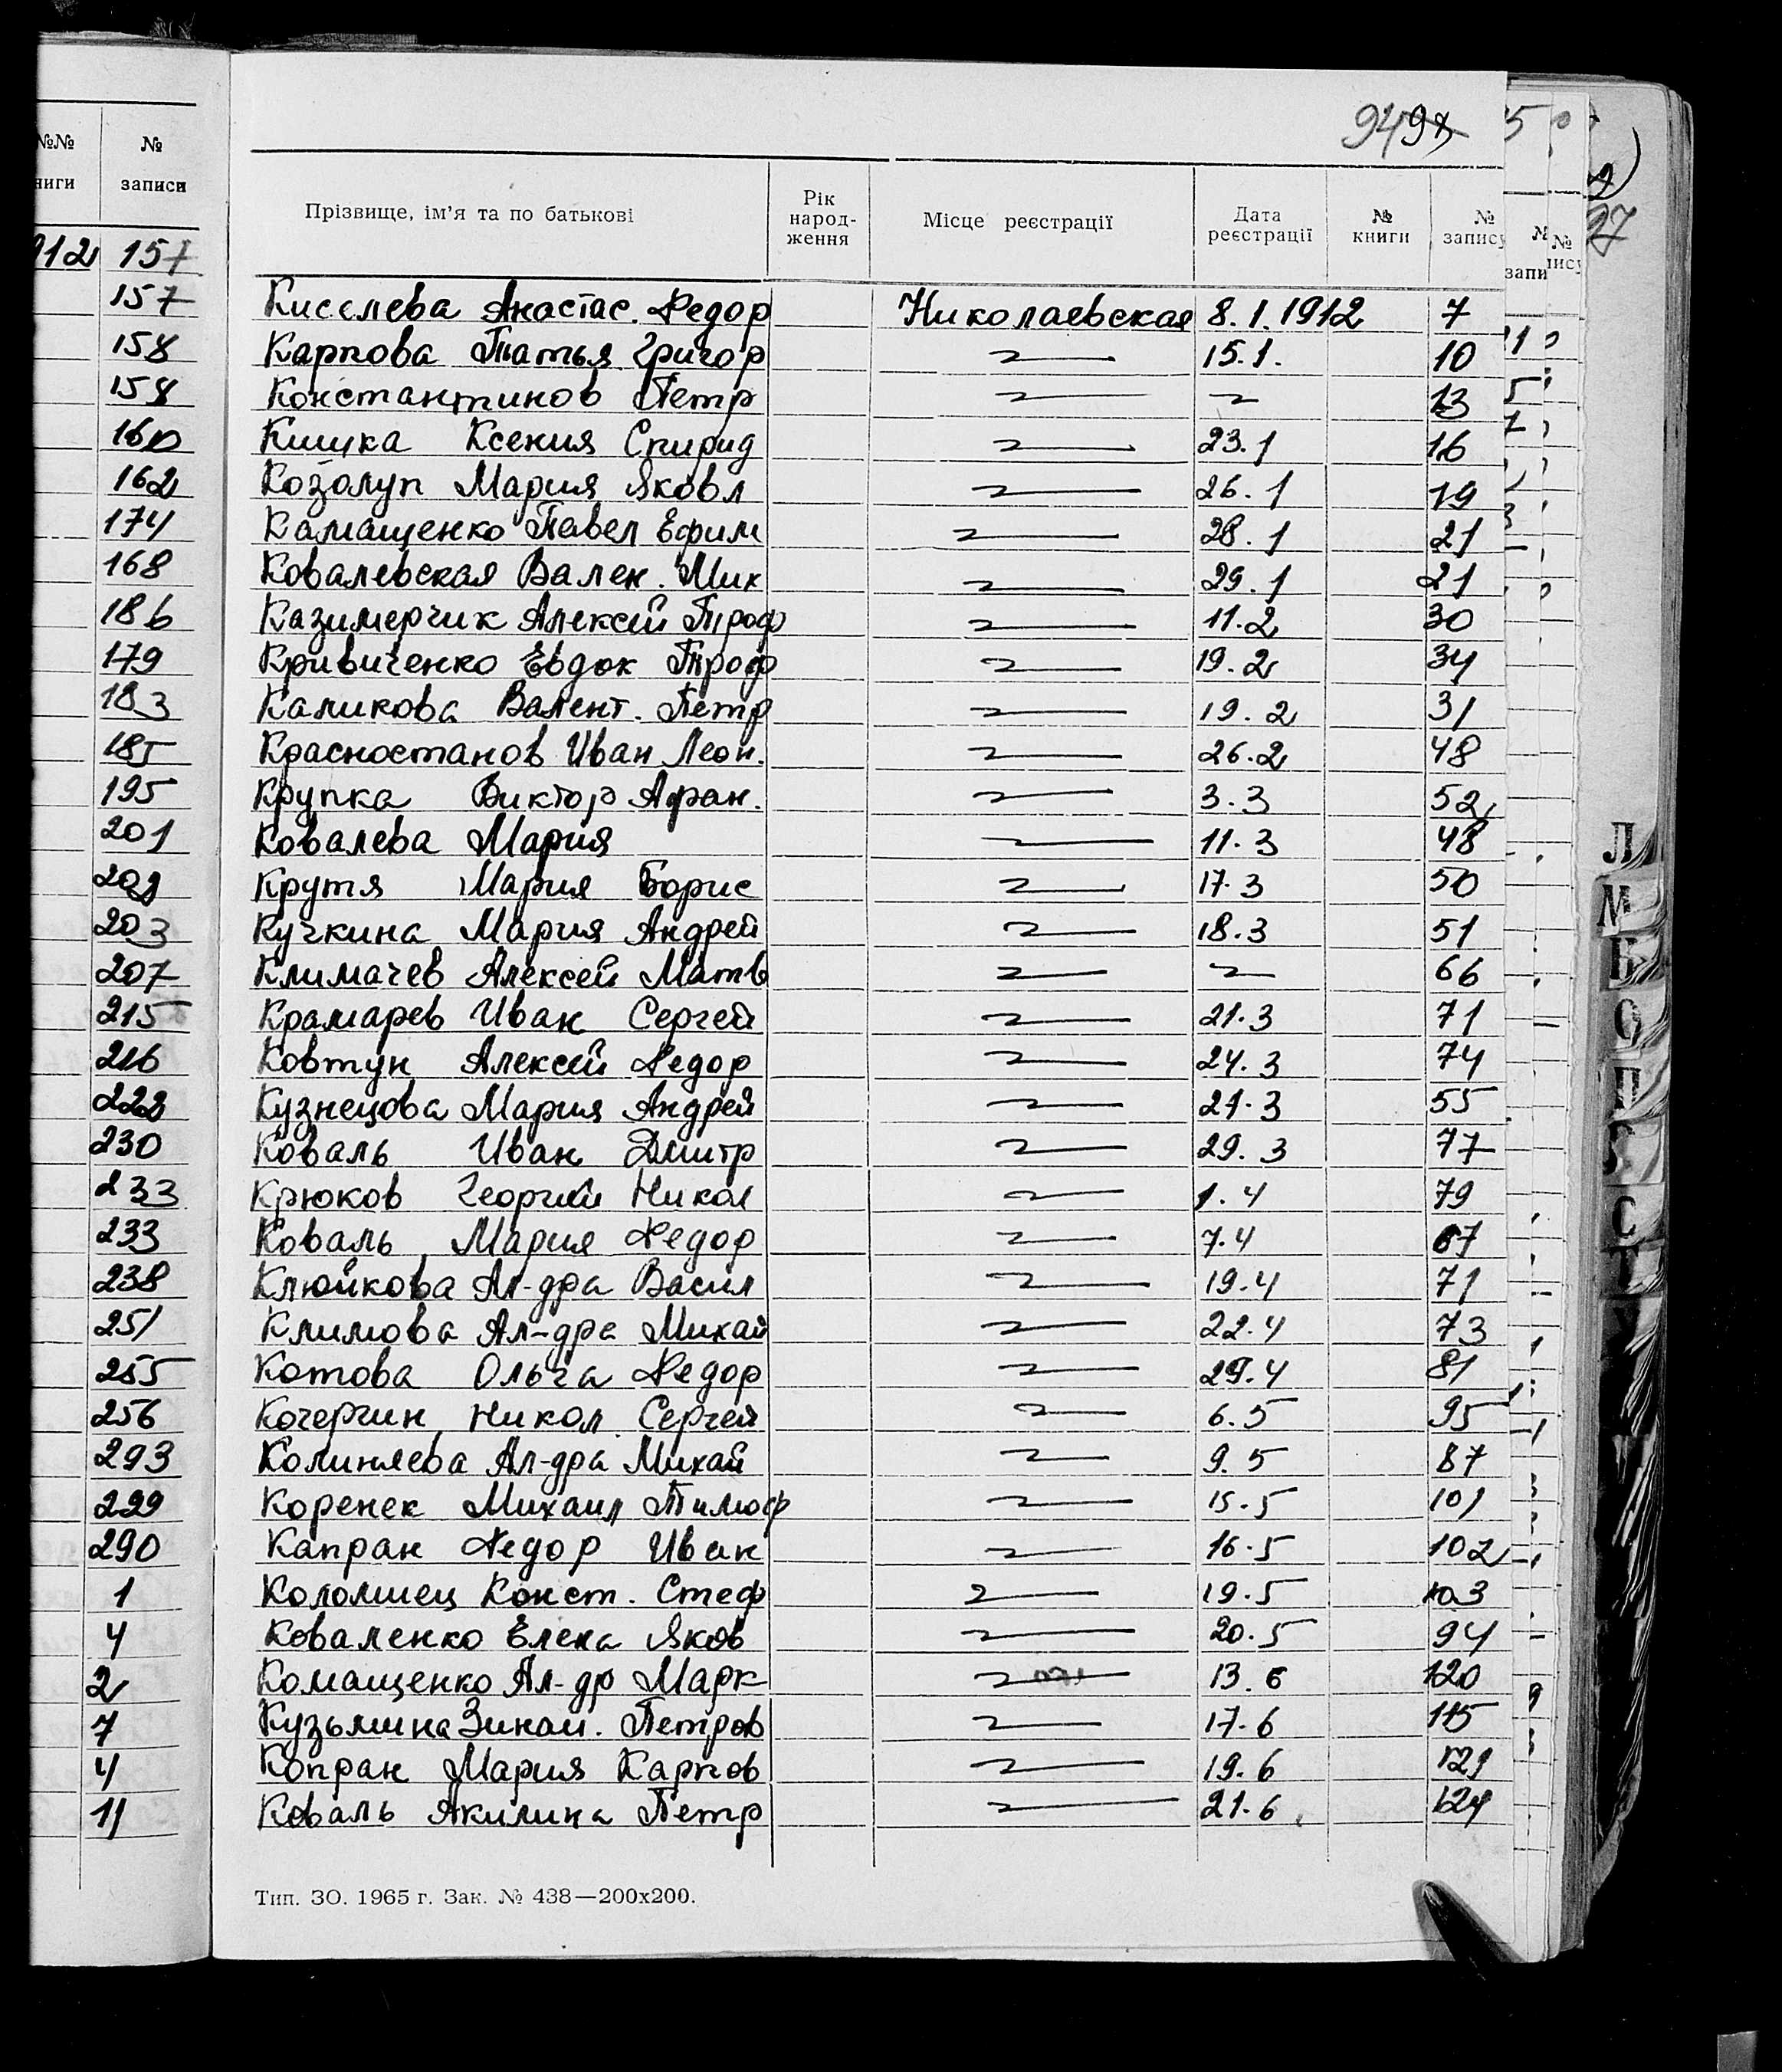 94 97
№№ № 
ниги записи
912 157
157
158
158
160
162
174
168
186
179
183
185
195
201
202
203
207
215
216
228
230
233
233
238
251
255
256
293
299
290
1
4
2
7
4
11
Прізвище, ім’я та по батькові Рік народ-ження Місце реєстрації Дата реєстрації № книги № запису
Киселева Анастас. Федор Николаевская 8.1.1912 7
Карпова Татья Григор 〃 15.1. 10
Константинов Петр 〃 〃 13
Кишка Ксения Спирид 〃 23.1 16
Козолуп Мария Яковл 〃 26.1 19
Камащенко Павел Ефим 〃 28.1 21
Ковалевская Вален. Мик 〃 29.1 21
Казимерчик Алексей Троф 〃 11.2 30
Кривиченко Евдок Троф 〃 19.2 34
Каликова Валент. Петр 〃 19.2 31
Красностанов Иван Леон. 〃 26.2 48
Крупка Виктор Афан. 〃 3.3 52
Ковалева Мария 〃 11.3 48
Крутя Мария Борис 〃 17.3 50
Кучкина Мария Андрей 〃 18.3 51
Климачев Алексей Матв 〃 〃 66
Крамарев Иван Сергей 〃 21.3 71
Ковтун Алексей Федор 〃 24.3 74
Кузнецова Мария Андрей 〃 21.3 55
Коваль Иван Дмитр 〃 29.3 77
Крюков Георгий Никол 〃 1.4 79
Коваль Мария Федор 〃 7.4 67
Клюйкова Ал-дра Васил 〃 19.4 71
Климова Ал-дра Михай 〃 22.4 73
Котова Ольга Федор 〃 29.4 81
Кочергин Никол Сергей 〃 6.5 95
Колиняева Ал-дра Михай 〃 9.5 87
Коренек Михаил Тимоф 〃 15.5 101
Капран Федор Иван 〃 16.5 102
Коломиец Конст. Стеф 〃 19.5 103
Коваленко Елена Яков 〃 20.5 94
Комащенко Ал-др Марк 〃 13.6 120
Кузьмина Зинаи. Петров 〃 17.6 115
Копран Мария Карпов 〃 19.6 121
Коваль Акилина Петр 〃 21.6 124
Тип. ЗО. 1965 г. Зак. № 438—200х200.
Л
М
О
П
С
Т
У